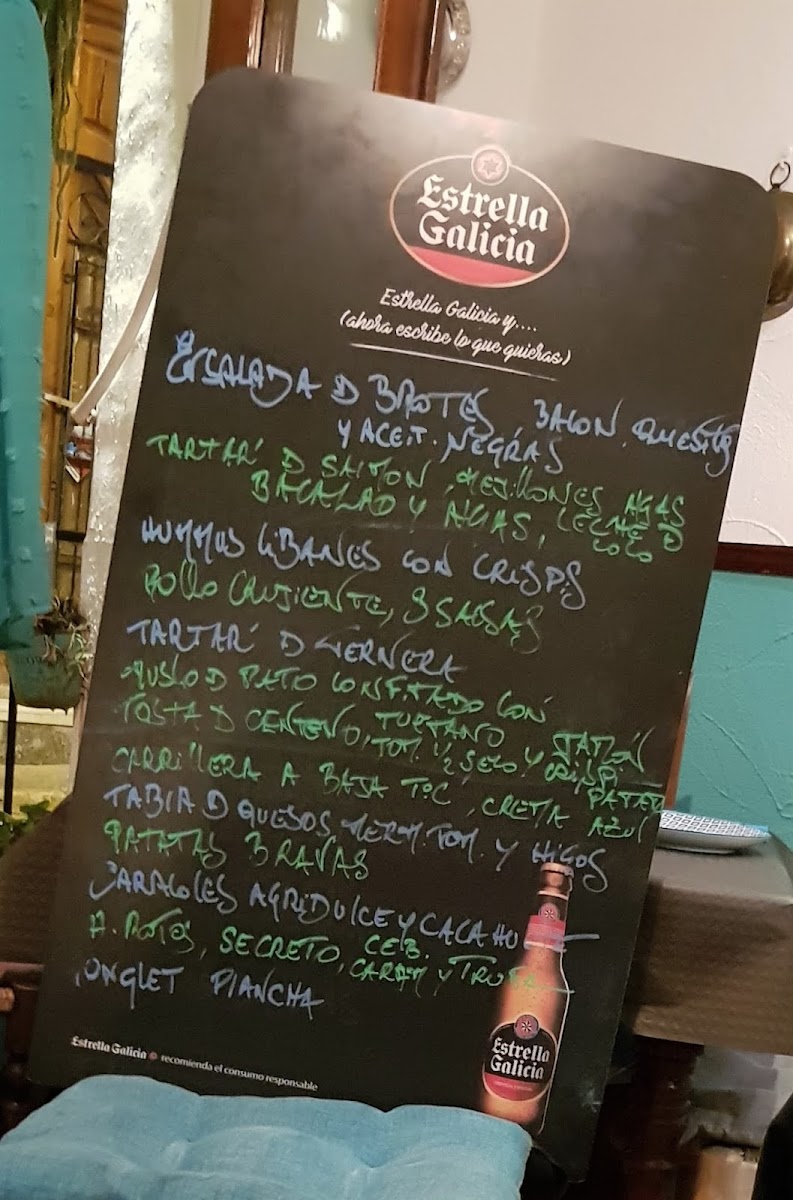 Estrella
Galicia
Estrella Galicia y....
(ahora escribe lo que quieras)
ENSALADA D BROTES, BACON, QUESITO
Y ACEIT. NEGRAS
TARTAR D SALMON, MEJILLONES, ALGAS
BACALAO Y ALGAS, LECHE D
COCO
HUMMUS LIBANES CON CRISPIS
POLLO CRUJIENTE, 3 SALSAS
TARTAR D TERNERA
MUSLO D PATO CONFITADO CON
TOSTA D CENTENO, TOM. 1/2 SECO Y CRISPI JAMÓN
CARRILLERA A BAJA TºC, CREMA PATATA
AZUL
TABLA D QUESOS, MERM. TOM. Y HIGOS
PATATAS BRAVAS
CARACOLES AGRIDULCE Y CACAHUETE
H. ROTOS, SECRETO, CEB.
CARAM Y TRUFA
ONGLET PLANCHA
Estrella
Galicia
Estrella Galicia recomienda el consumo responsable